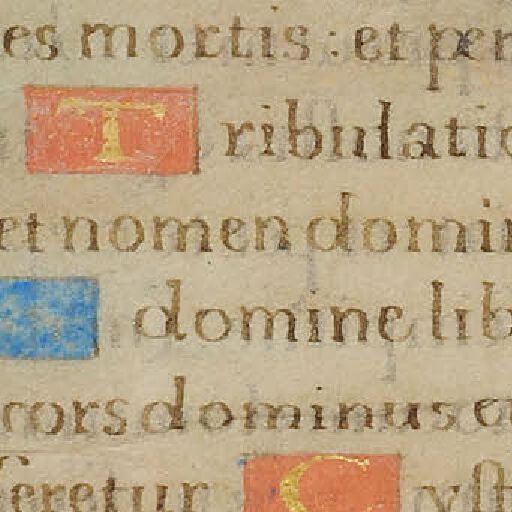 es mortis : et per
Tribulatio
et nomen domin
domine lib
cors dominus et
seretur Cust